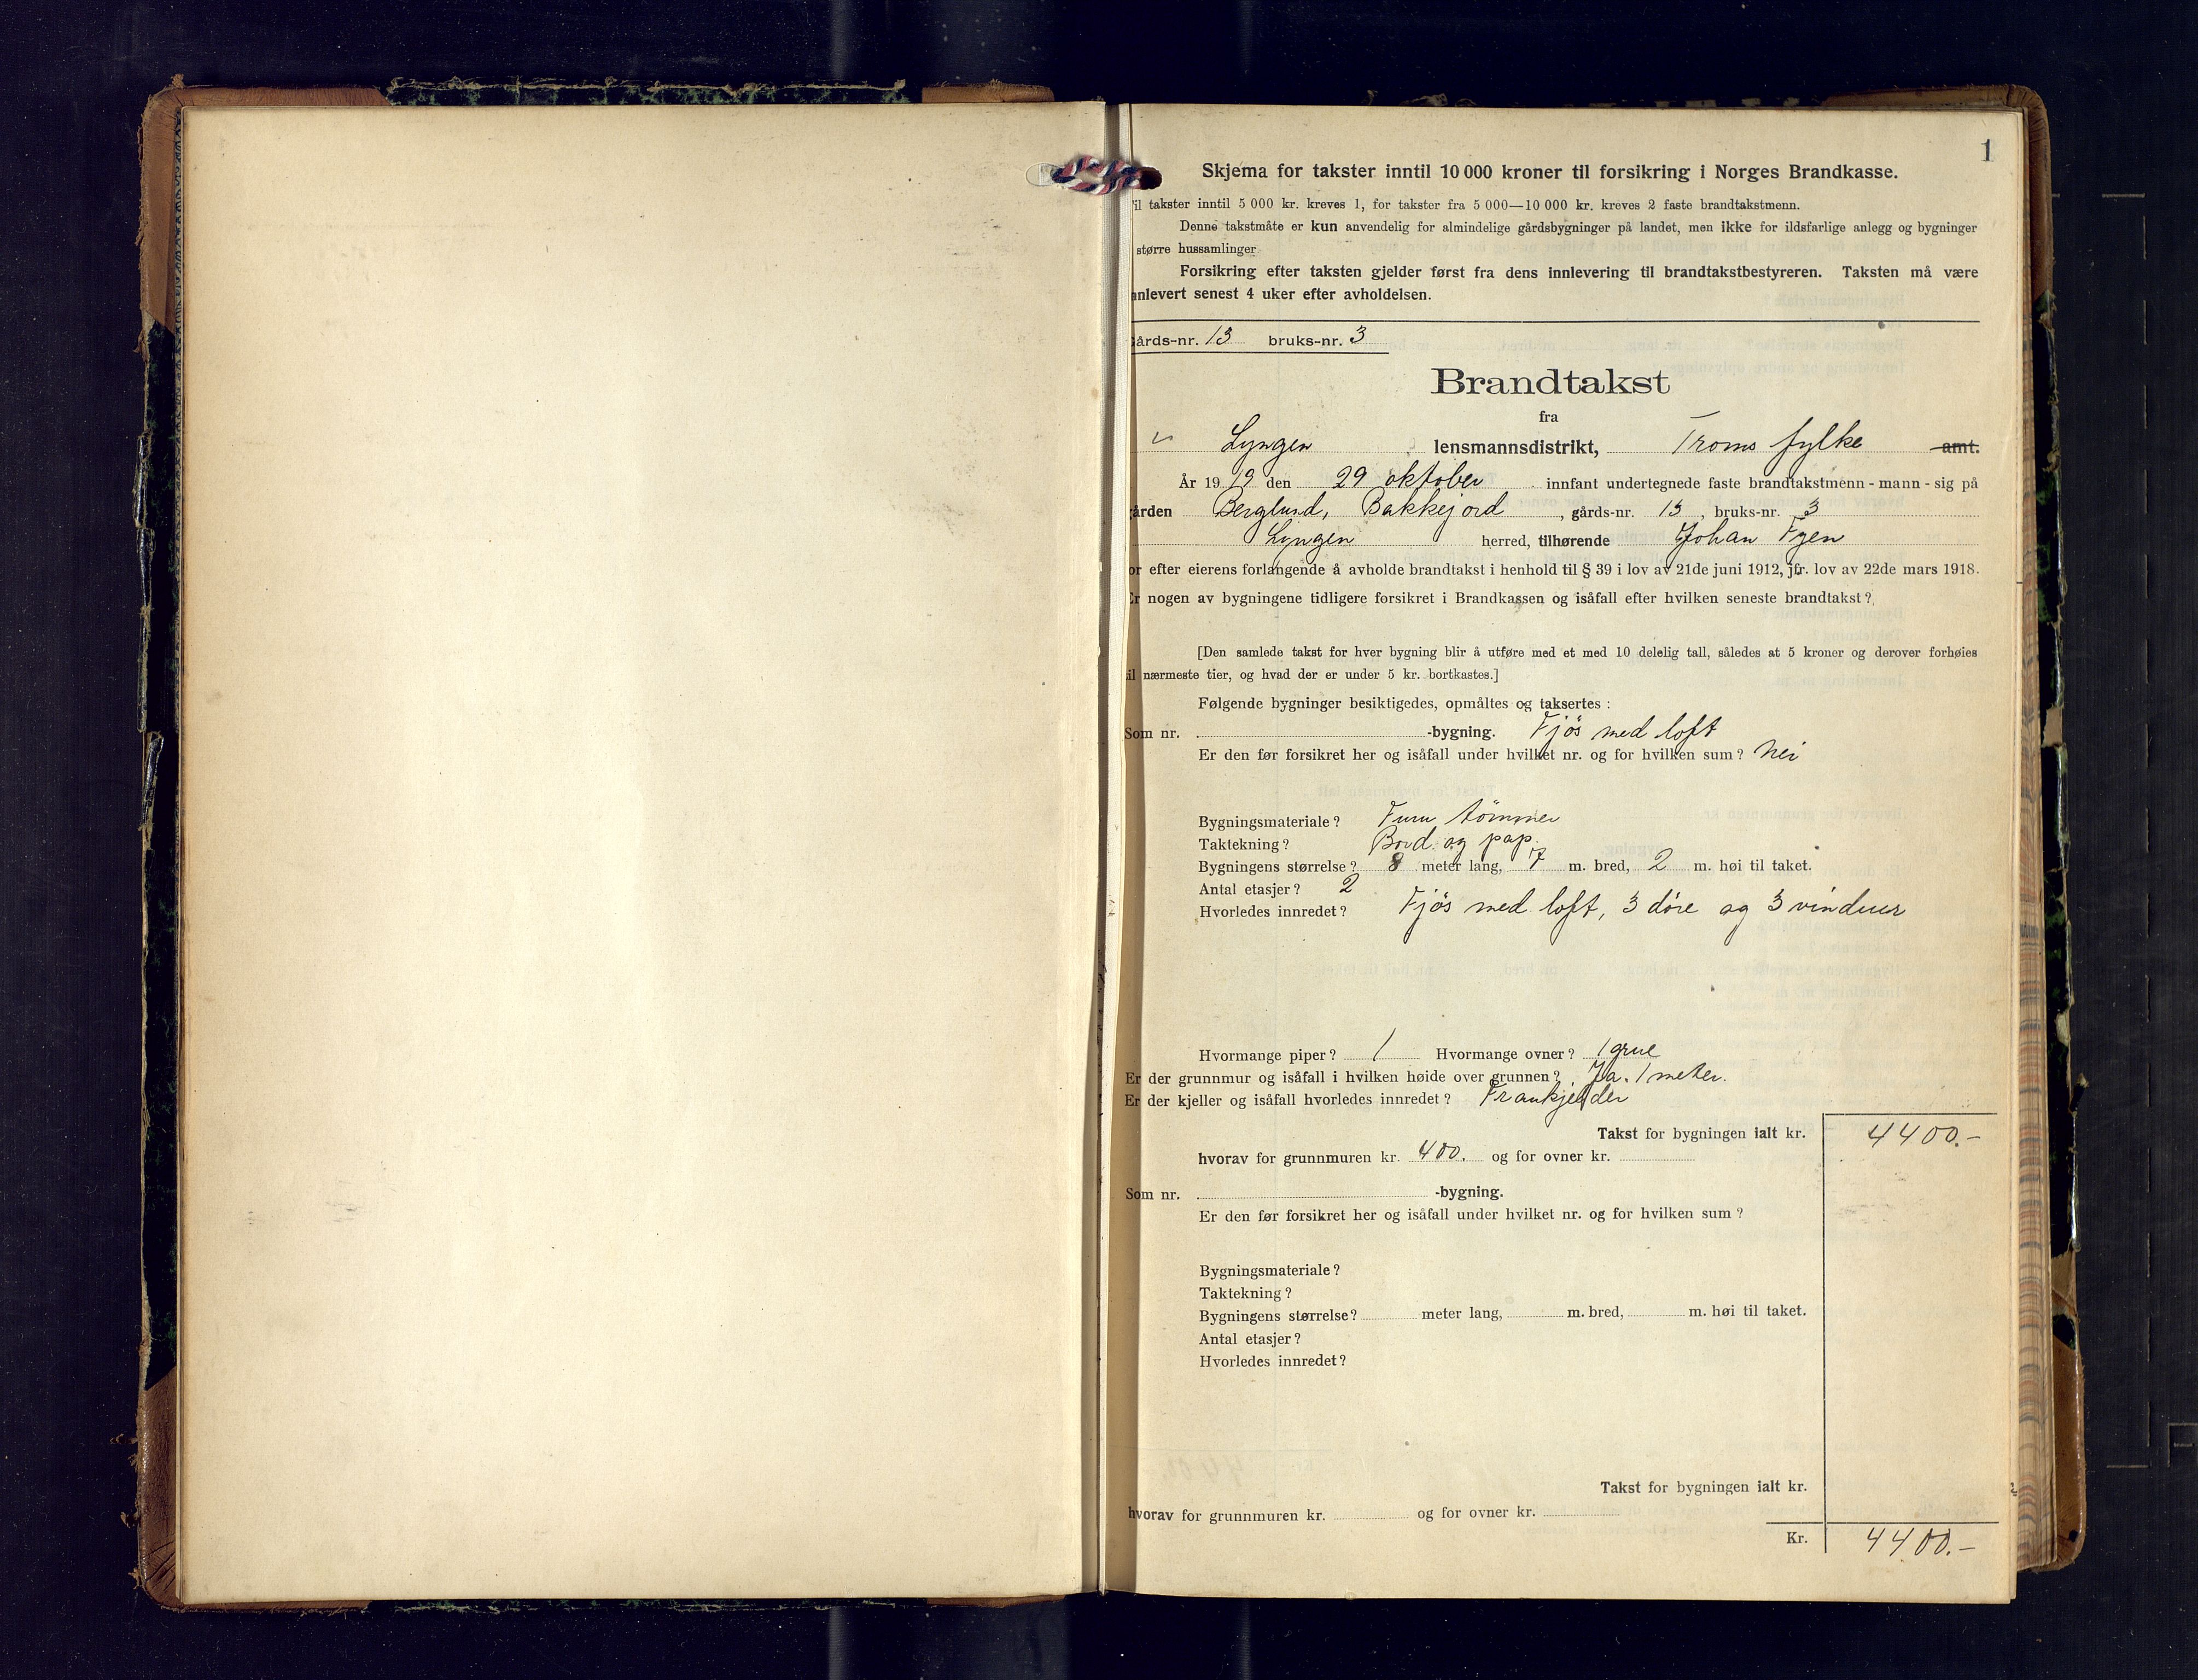 1
Skjema for takster inntil 10 000 kroner til forsikring i Norges Brandkasse.
il takster inntil 5 000 kr. kreves 1, for takster fra 5 000—10 000 kr. kreves 2 faste brandtakstmenn.
Denne takstmåte er kun anvendelig for almindelige gårdsbygninger på landet, men ikke for ildsfarlige anlegg og bygninger
større hussamlinger
Forsikring efter taksten gjelder først fra dens innlevering til brandtakstbestyreren. Taksten må være
nnlevert senest 4 uker efter avholdelsen.
årds-nr. 13 bruks-nr. 3
Brandtakst
fra
Lyngen lensmannsdistrikt, Troms fylke amt.
År 1919 den 29 oktober innfant undertegnede faste brandtakstmenn - mann - sig på
ården Berglund, Bakkejord, gårds-nr. 13, bruks-nr. 3
Lyngen herred, tilhørende Johan Fyen
or efter eierens forlangende å avholde brandtakst i henhold til § 39 i lov av 21de juni 1912, jfr. lov av 22de mars 1918.
Er nogen av bygningene tidligere forsikret i Brandkassen og isåfall efter hvilken seneste brandtakst?
[Den samlede takst for hver bygning blir å utføre med et med 10 delelig tall, således at 5 kroner og derover forhøies
il nærmeste tier, og hvad der er under 5 kr. bortkastes.]
Følgende bygninger besiktigedes, opmåltes og taksertes :
Som nr. -bygning. Fjös med loft
Er den før forsikret her og isåfall under hvilket nr. og for hvilken sum? Nei
Bygningsmateriale? Furu tömmer
Taktekning? Bord og pap.
Bygningens størrelse? 8 meter lang, 7 m. bred, 2 m. høi til taket.
Antal etasjer? 2
Hvorledes innredet? Fjös med loft, 3 döre og 3 vinduer
Hvormange piper? 1 Hvormange ovner? 1 grue
Er der grunnmur og isåfall i hvilken høide over grunnen? Ja. 1 meter.
Er der kjeller og isåfall hvorledes innredet?
Takst for bygningen ialt kr. 4400.-
hvorav for grunnmuren kr. 400. og for ovner kr.
Som nr. -bygning.
Er den før forsikret her og isåfall under hvilket nr. og for hvilken sum?
Bygningsmateriale?
Taktekning?
Bygningens størrelse? meter lang, m. bred, m. høi til taket.
Antal etasjer?
Hvorledes innredet?
Takst for bygningen ialt kr.
hvorav for grunnmuren kr. og for ovner kr.
Kr. 4400.-